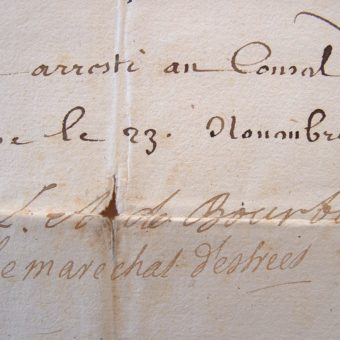 arresté au Conseil
le 23. Nouembre
L. A. de Bourbo
le marechal destrées